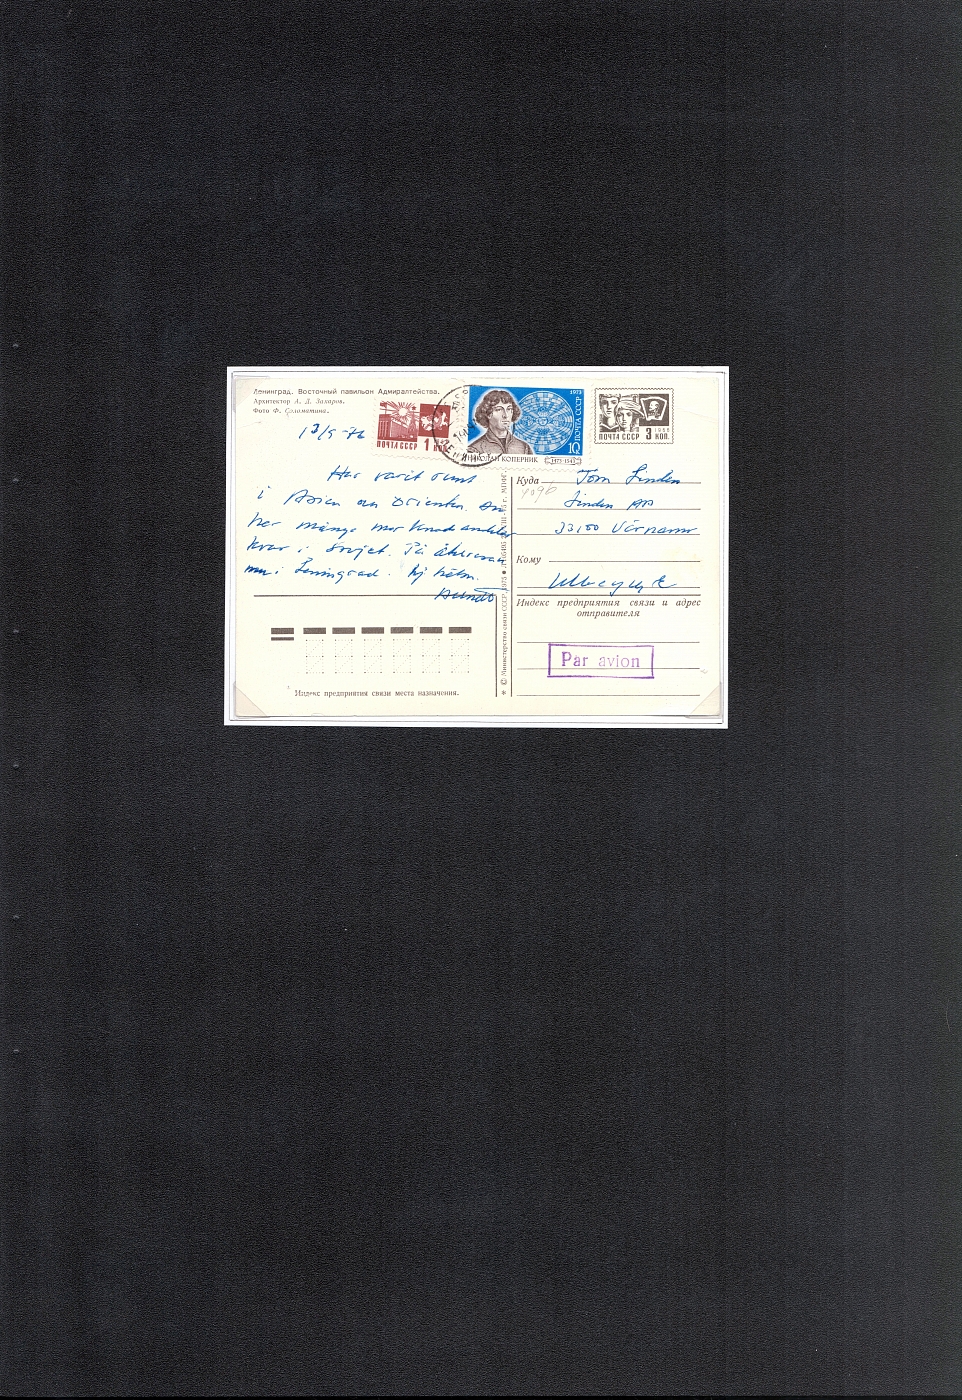 Ленинград. Восточный павильон Адмиралтейства.
Архитектор А. Д. Захаров.
Фото Ф. Соломатина.
13/5-76
ПОЧТА СССР 1 КОП.
1973
ПОЧТА СССР
10
НИКОЛАЙ КОПЕРНИК
1473-1543
ПОЧТА СССР 3 КОП.
Har varit runt
i Asien och Orienten.
har många
kvar i Sovjet. På
nu i Leningrad. Hj hälsn.
Куда Tom Linden
4096
Linden AB
33100 Värnamo
Кому
Швеция
Индекс предприятия связи и адрес
отправителя
Par avion
Индекс предприятия связи места назначения.
© Министерство связи СССР, 1975